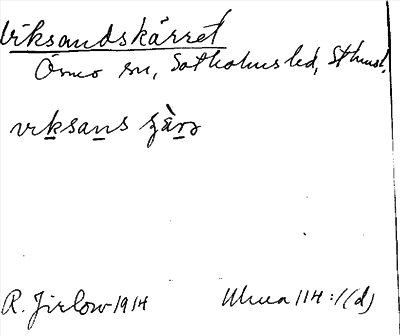 Viksandskärret
Ösmo sn, Sotholms hd, Sthms l.
viksans
R. Jirlow 1914
114:1(d)